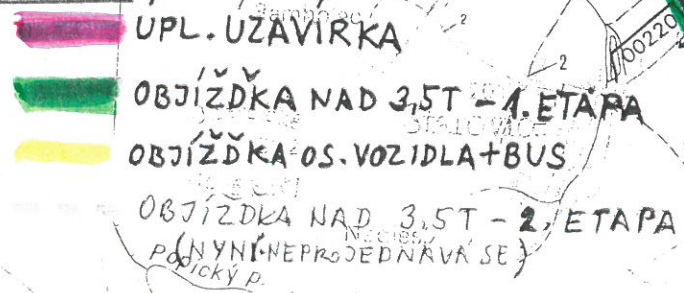 UPL. UZAVÍRKA
2
2
00220
OBJÍŽĎKA NAD 3,5T - 1. ETAPA
OBJÍŽĎKA OS. VOZIDLA + BUS
OBJÍZDKA NAD 3,5T - 2. ETAPA
(NYNÍ NEPROJEDNÁVÁ SE)
Popický p.